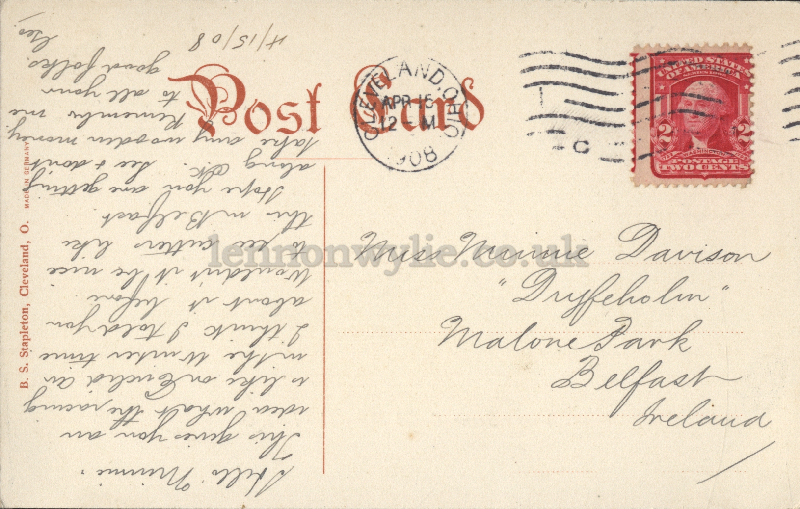 Post Card
CLEVELAND, OHIO
APR 15
12 - M
1908
UNITED STATES
OF AMERICA
2 2
POSTAGE
TWO CENTS
C
Miss Minnie Davison
"Dryfeholm"
Malone Park
Belfast
Ireland
lennonwylie.co.uk
B. S. Stapleton, Cleveland, O. MADE IN GERMANY
4/15/08
Hello Minnie:
This gives you an
idea what the racing
is like on Euclid av
in the Winter time
I think I told you
about it before
Wouldn't it be nice
to see cutters like
this in Belfast.
Hope you are getting
along OK. Gee & don't
take any wooden money
Remember me
to all your
good folks.
Geo.